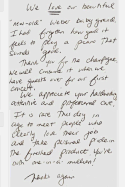 We love our beautiful
"new-old" Weber baby grand.
I had forgotten how good it
feels to play a piano that
sounds good.
Thank you for the champagne,
we will ensure it when we
have guests over for our first
concert.
We appreciate your
attentive and professional care.
It is rare this day in
age to meet people who
clearly love their job
and take personal pride in
the finished product. You're
one-in-a million!
Thanks again